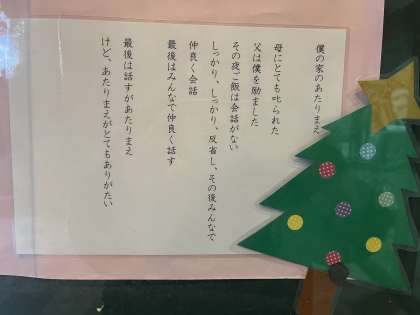 僕の家のあたりまえ
母にとても叱られた
父は僕を励ました
その夜ご飯は会話がない
しっかり、しっかり、反省し、その後みんなで
仲良く会話
最後はみんなで仲良く話す
最後は話すがあたりまえ
けど、あたりまえがとてもありがたい